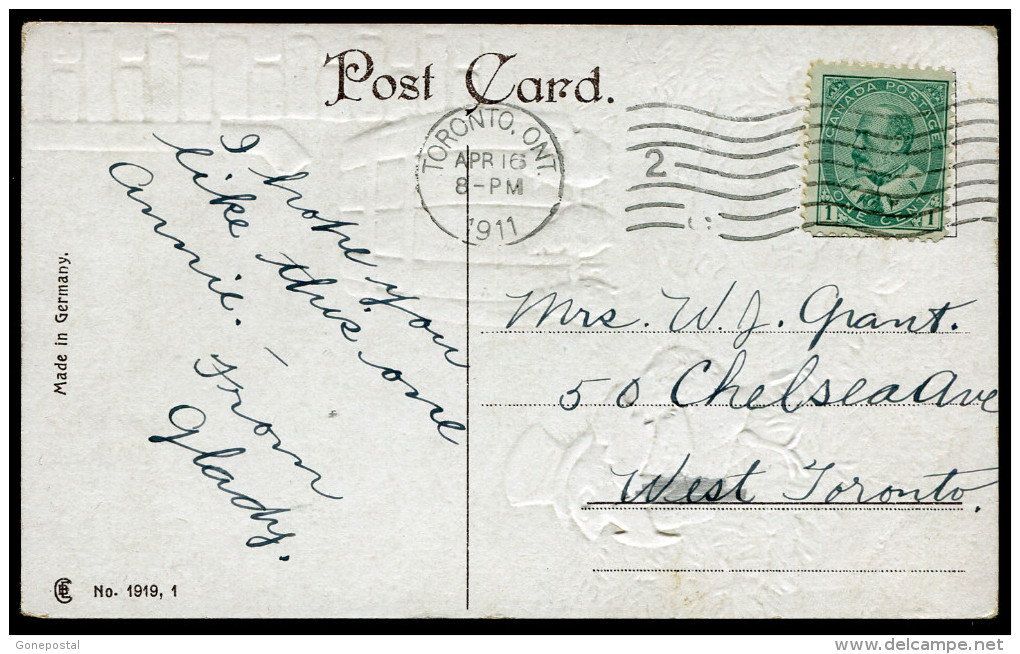 Post Card.
TORONTO, ONT.
APR 16
8-PM
1911
2
CANADA POSTAGE
1 ONE CENT 1
I hope you
like this one
Annie. -
From
Gladys.
Mrs. W. J. Grant.
50 Chelsea Ave
West Toronto.
Made in Germany.
No. 1919, 1
Gonepostal
delcampe.net